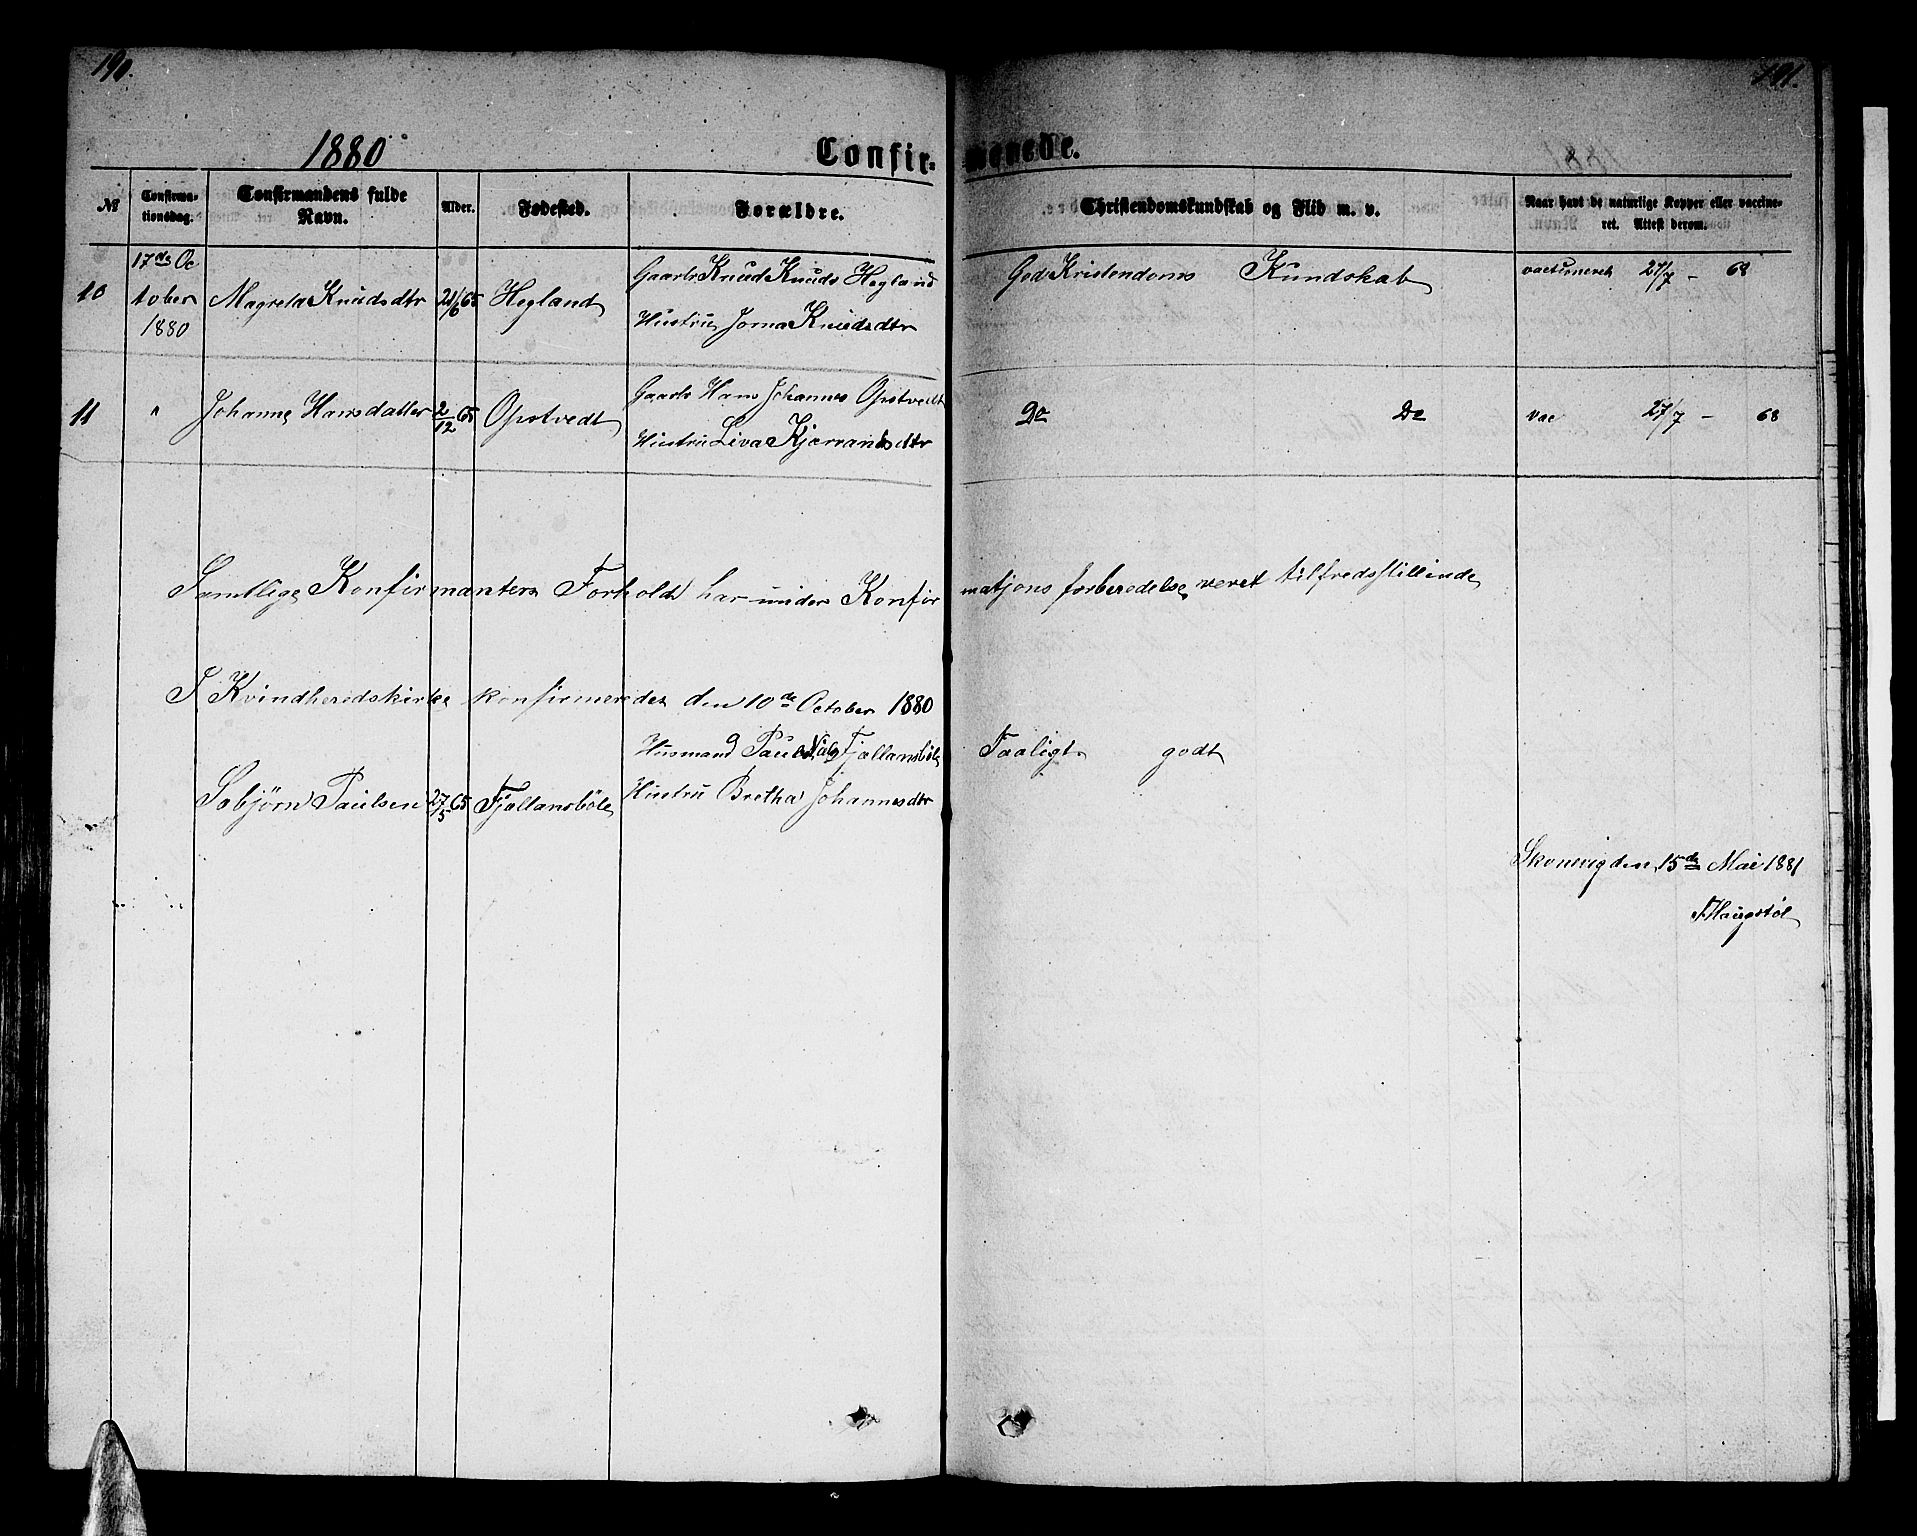 190.
191.
1880
Confir-
manede.
№
Confirma-
tionsdag.
Confirmandens fulde
Navn.
Alder.
Fødested.
Forældre.
Christendomskundskab og Flid m. v.
Naar havt de naturlige Kopper eller vaccine-
ret. Attest derom.
10
17de Oc
tober
1880
Magreta Knudsdtr
21/6 65
Hegland
Gaarbr Knud Knuds Hegland
Hustru Jorna Knudsdtr
God Kristendoms Kundskab
vacsineret 27/7 - 68
11
"
Johanne Hansdatter
2/12 65
Opstvedt
Gaarbr Hans Johannes Opstvedt
Hustru Liva Kjerrandsdtr
Do Do
vac 27/7 - 68
Samtlige Konfirmanters Forhold har under Konfir
matjons forberedelse veret tilfredsstillende
I Kvindheredskirke konfirmeredes den 10de October 1880
Sobjørn Paulsen
27/5 65
Fjellansbøle
Husmand Paul Fjellansbøle
Hustru Bretha Johannesdtr
Taaligt godt
Skonevig den 15de Mai 1881
Haugstøl